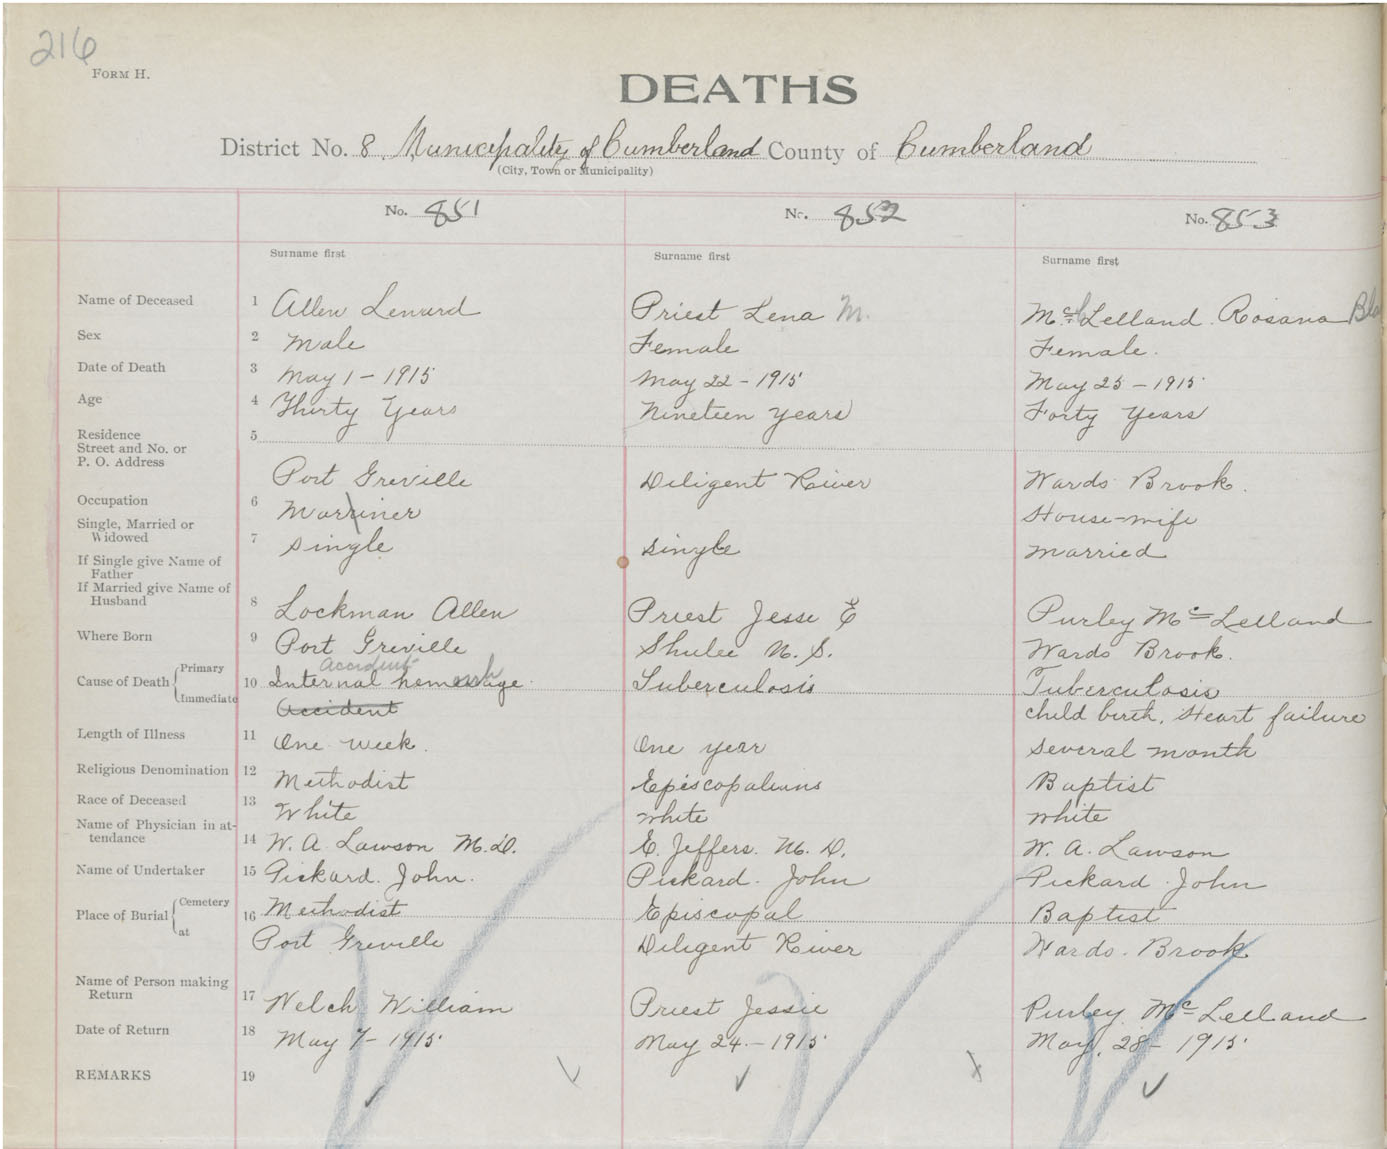 216
FORM H.
DEATHS
District No. 8 Municipality of Cumberland County of Cumberland
(City, Town or Municipality)
No. 851 No. 852 No. 853
Surname first Surname first Surname first
Name of Deceased 1 Allen Lenard Priest Lena M. McLelland Rosana
Sex 2 Male Female Female.
Date of Death 3 May 1 - 1915 May 22 - 1915 May 25 - 1915
Age 4 Thirty Years Nineteen years Forty Years
Residence 5
Street and No. or
P. O. Address
Port Greville Diligent River Wards Brook.
Occupation 6 Marriner House-wife
Single, Married or
Widowed 7 Single Single Married
If Single give Name of
Father
If Married give Name of
Husband 8 Lockman Allen Priest Jesse E Purley McLelland
Where Born 9 Port Greville Shulee N. S. Wards Brook.
accident
Cause of Death Primary 10 Internal hemorrhage Tuberculosis Tuberculosis
Immediate Accident child birth, Heart failure
Length of Illness 11 One week. One year Several month
Religious Denomination 12 Methodist Episcopalians Baptist
Race of Deceased 13 White White White
Name of Physician in at-
tendance 14 W. A. Lawson M.D. E. Jeffers. M. D. W. A. Lawson
Name of Undertaker 15 Pickard. John. Pickard. John Pickard John
Place of Burial Cemetery 16 Methodist Episcopal Baptist
at Port Greville Diligent River Wards. Brook
Name of Person making
Return 17 Welch William Priest Jessie Purley McLelland
Date of Return 18 May 7 - 1915 May 24 - 1915 May. 28 - 1915
REMARKS 19